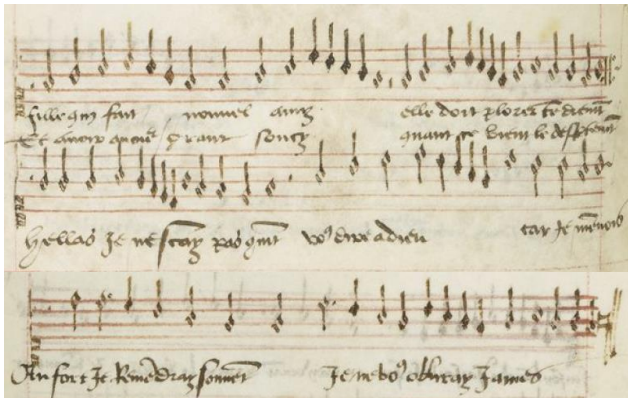 fille qui fait nouvel amy elle doit plorer tendremt
Et avoir au cueur grant soucy quant ce vient le despartemt
hellas Je ne scay pas qmt voꝰ dire adieu car Je men vois
Au fort Je Reviendray souvet Je ne voꝰ obliray James